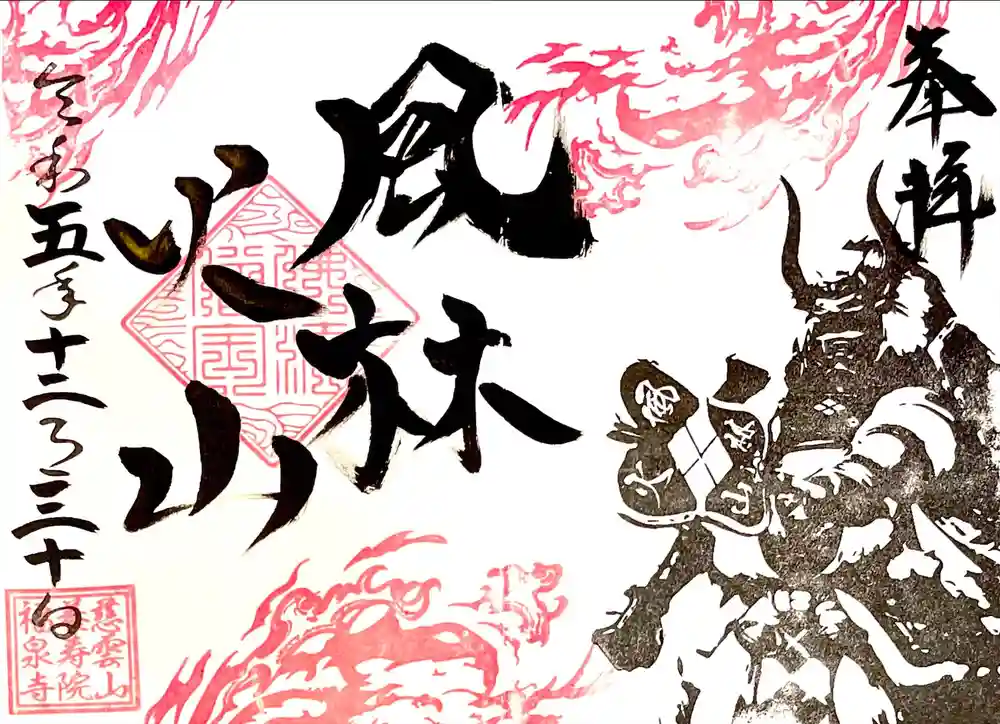 奉拝
風林
火山
令和五年十二月三十日
佛法僧寶
慈雲山
長寿院
福泉寺